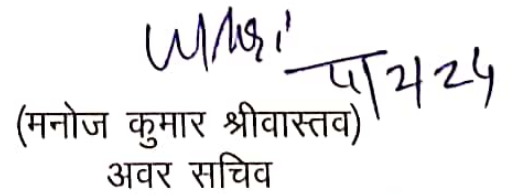 (मनोज कुमार श्रीवास्तव)
अवर सचिव